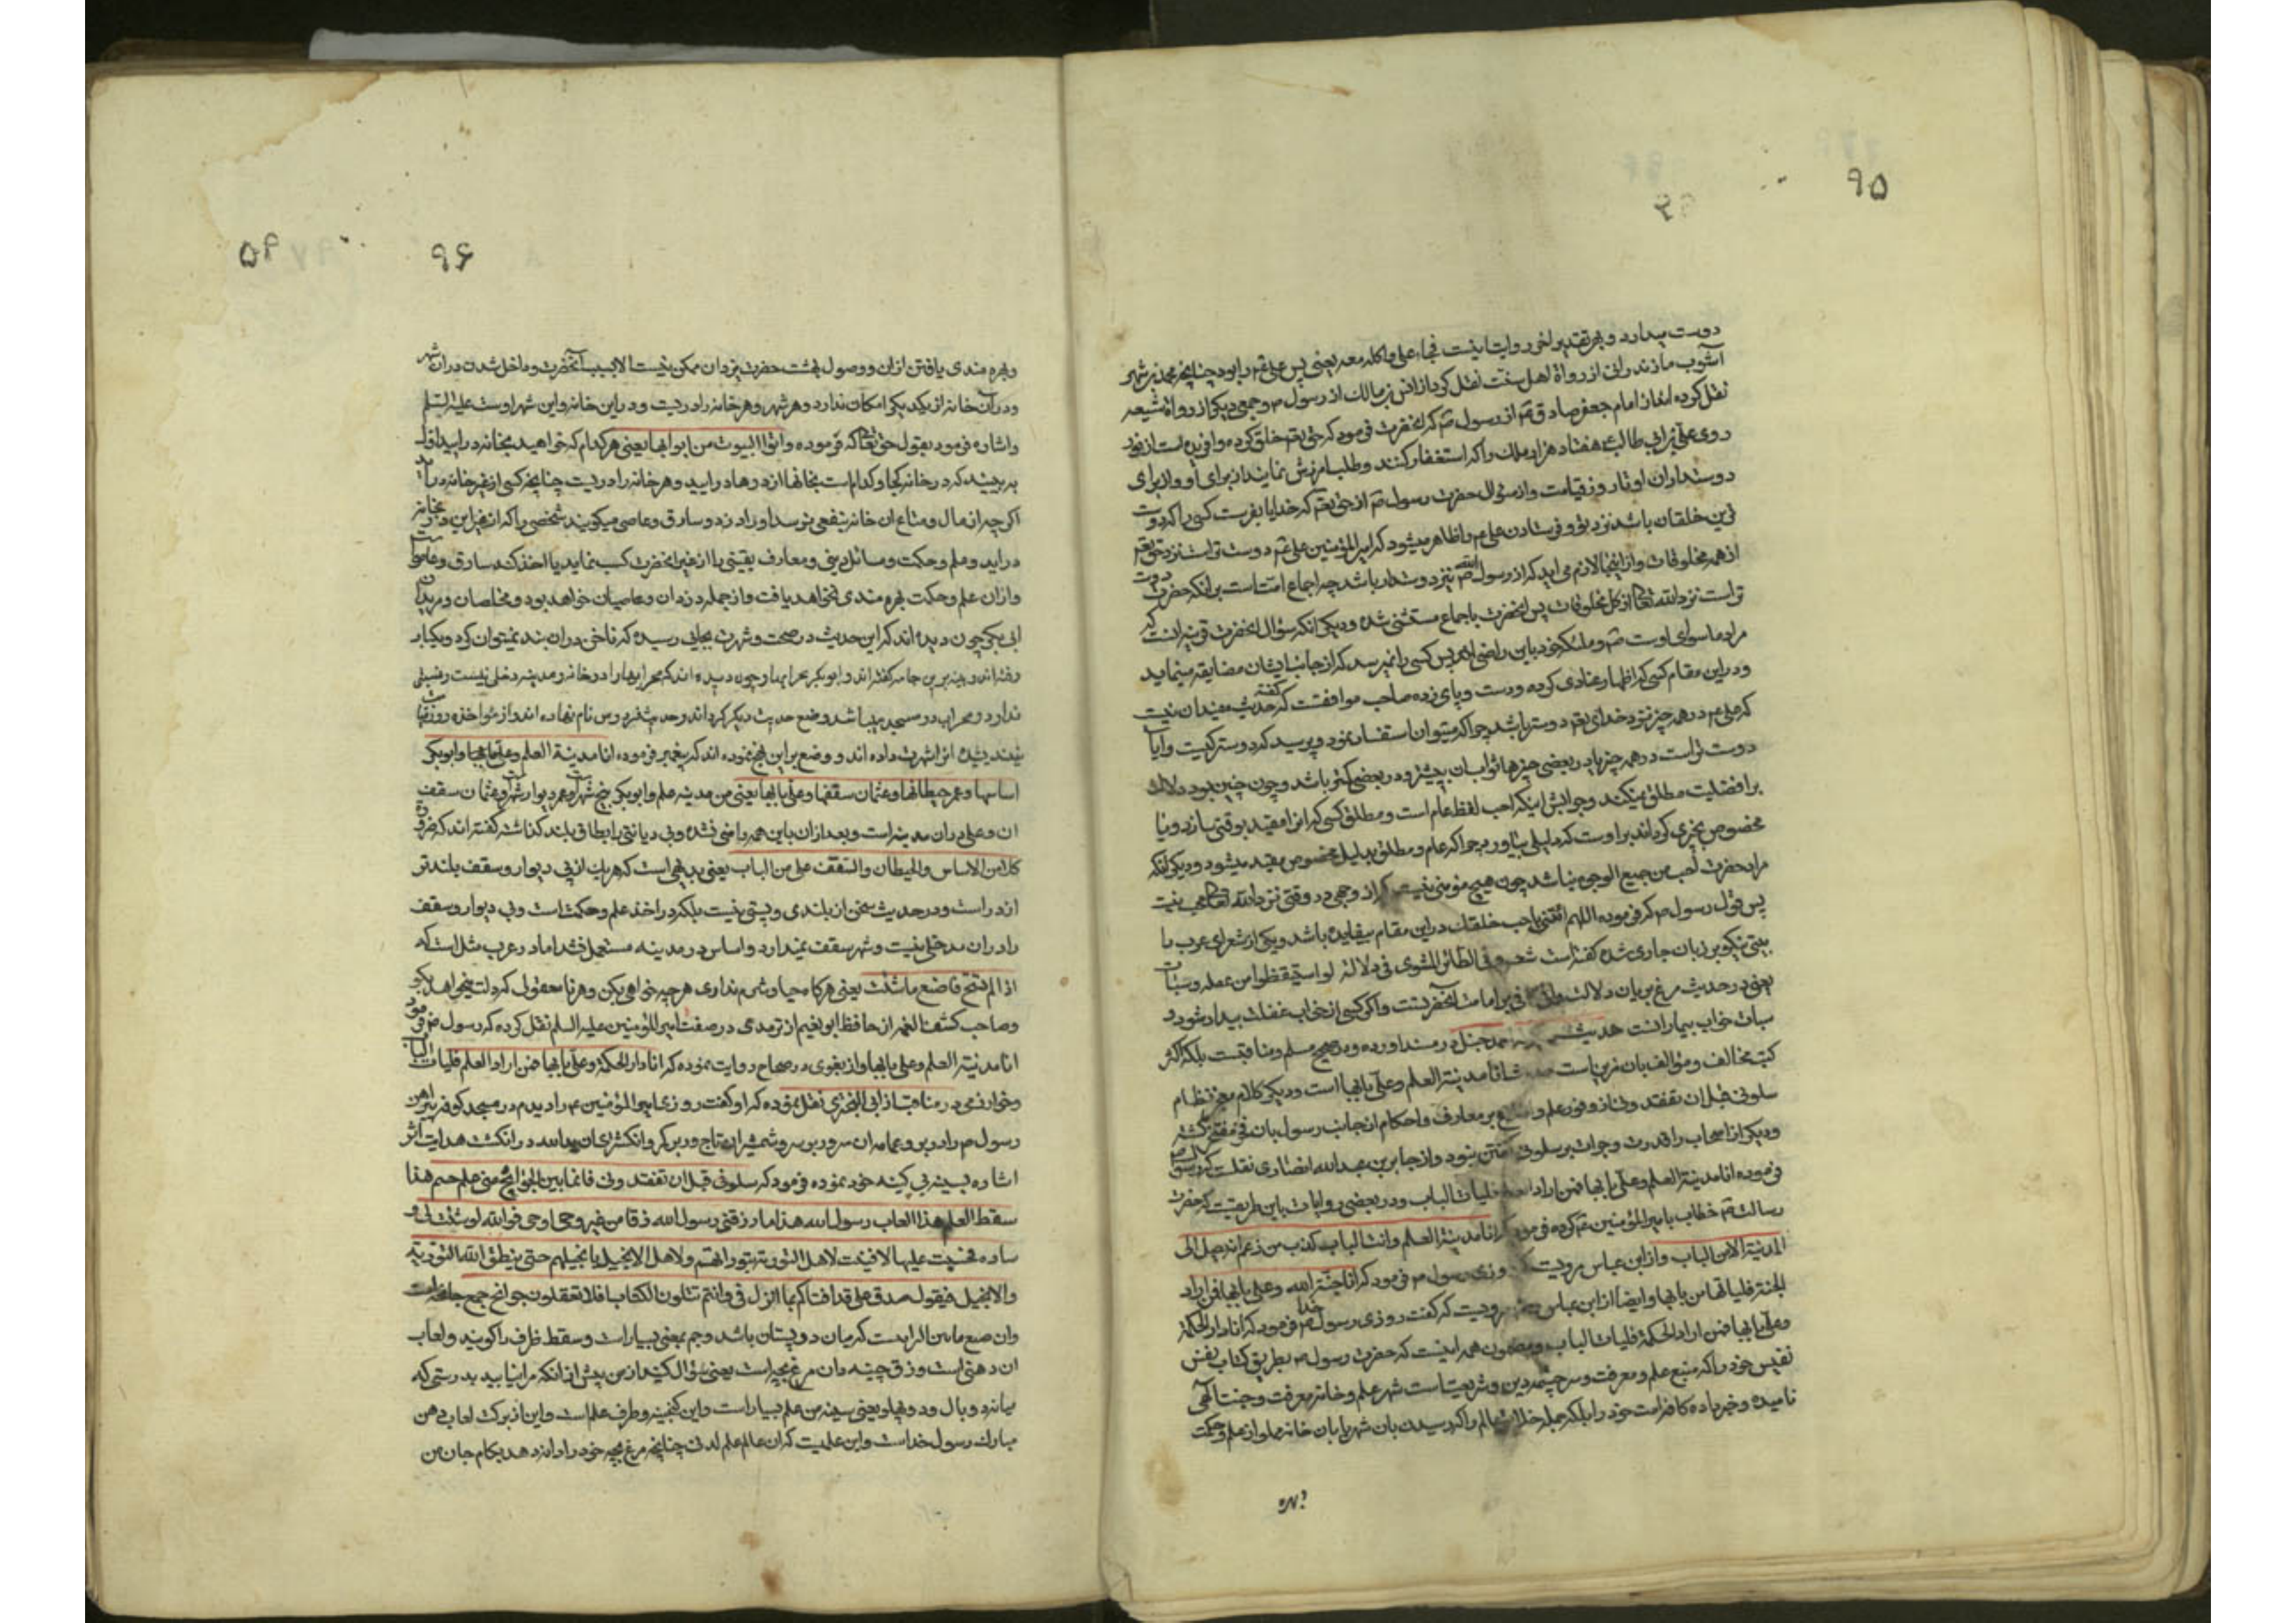 ۹۵
دوست میدارد و بر تقدیر لخی روایت اینست فجاء علی واکله معه یعنی پس علی ع را بود چنانچه محمد بن شهر
آشوب مازندرانی از رواة اهل سنت نقل کرد از انس بن مالک از رسول ص و جمعی دیکر از رواة شیعه
نقل کرده اند از امام جعفر صادق ع از رسول ص که انحضرت فرمود که حق تعم خلق کرده و افریده است از نور
روی علی بن ابی طالب ع هفتاد هزار ملک را که استغفار کنند و طلب امرزش نمایند از برای او و از برای
دوستداران او تا روز قیامت و از سؤال حضرت رسول ص از حق تعم که خدایا بفرست کسی را که دوست
ترین خلقان باشد نزد تو و فرستادن علی ع را ظاهر میشود که امیر المؤمنین علی ع دوست تر است نزد حق تعم
از همه مخلوقات و از اینجا لازم می اید که از رسول الله ص نیز دوستدار باشد چه اجماع امت است بر انکه حضرت دوست
تر است نزد الله تعالی از کل مخلوقات پس انحضرت باجماع مستثنی شده و دیکر انکه سؤال انحضرت قرینه انست که
مراد ما سوای اوست ص و هر کاه خود باین راضی اند پس کسی را نمیرسد که از جانب ایشان مضایقه مینماید
و در این مقام کسی که اظهار عنادی کرده و دست و پای زده صاحب موافقت کفته که حدیث مفید ان نیست
که علی ع در همه چیز نزد خدای تعم دوستر باشد چرا که میتوان استفسار نمود و پرسید که دوستر کیست و ایا
دوست تر است در همه چیز یا در بعضی چیزها ثواب ان بیشتر و در بعضی کمتر باشد و چون چنین بود دلالت
بر افضلیت مطلق نمیکند و جوابش اینکه احب لفظ عام است و مطلق کسی که انرا مقید بوقتی سازد و یا
مخصوص بچیزی کرداند بر اوست که دلیلی بیاورد چرا که عام و مطلق بدلیل مخصوص مقید میشود و دیکر انکه
مراد حضرت احب من جمیع الوجوه میباشد چون هیچ مؤمنی نیست که از وجهی در وقتی نزد الله تعالی محب نیست
پس قول رسول ص که فرموده اللهم ائتنی باحب خلقک در این مقام بیفایده باشد و یکی از شعرای عرب را
بیتی نیکو بر زبان جاری شده کفته است شعر و فی الطائر المشوی فی دلالة لو استیقظوا من غفلة و سبات
یعنی در حدیث مرغ بریان دلالت وافی بر امامت انحضرتست و اکر کسی از خواب غفلت بیدار شود و
سبات خواب بیمارانست حدیث احمد حنبل در مسند اورده و در صحیح مسلم و مناقبست بلکه اکثر
کتب مخالف و مؤالف بان مزین است حدیث انا مدینة العلم و علی بابها است و دیکر کلام معجز نظام
سلونی قبل ان تفقدونی از وفور علم و بر معارف و احکام انجاب رسول بان فرمفتح کشته
و دیکر از اصحاب را قدرت و جرات بر سلونی کفتن نبود و از جابر بن عبدالله انصاری نقلست که رسول ص
فرموده انا مدینة العلم و علی بابها فمن اراد العلم فلیات الباب و در بعضی روایات باین طریقست که حضرت
رسالت ص خطاب بامیر المؤمنین ع کرده فرمود که انا مدینة العلم و انت الباب کذب من زعم انه یصل الی
المدینة الا من الباب و از ابن عباس مرویست که روزی رسول ص فرمود که انا جنة الله و علی بابها فمن اراد
الجنة فلیاتها من بابها و ایضا از ابن عباس مرویست که کفت روزی رسول خدا ص فرمود که انا دار الحکمة
و علی بابها فمن اراد الحکمة فلیات الباب و مضمون همه اینست که حضرت رسول ص بطریق کتاب نفس
نفیس خود را که منبع علم و معرفت و سرچشمه دین و شریعتست شهر علم و خانه معرفت و جنت الهی
نامیده و خبر داده کافه امت خود را بلکه جمله خلایق عالم را که رسیدن بان شهر یا بان خانه مملو از علم و حکمت
و بهره
۹۶
۵۴
و بهره مندی یافتن از ان و وصول بهشت حضرت یزدان ممکن نیست الا بسبب انحضرت و داخل شدن در ان شهر
و در ان خانه از یکدیکر امکان ندارد و هر شهر و هر خانه را دریست و در این خانه و این شهر اوست علیه السلم
و اشاره فرمود بقول حق تعالی که فرموده و اتوا البیوت من ابوابها یعنی هر کدام که خواهید بخانه در ایید اول
به بینید که در خانه کجا و کدام است بخانها از درها در ایید و هر خانه را دریست چنانچه کسی از غیر خانه در اید
اکر چه از مال و متاع ان خانه نفعی برسد او را دزد و سارق و عاصی میکویند شخصی را که از غیر این در بخانه
در اید و علم و حکمت و مسائل دینی و معارف یقینی را از غیر انحضرت کسب نماید یا اخذ کند سارق و عاصی است
و از ان علم و حکمت بهره مندی نخواهد یافت و از جمله دزدان و عاصیان خواهد بود و مخلصان و مریدان
ابی بکر چون دیده اند که این حدیث در صحت و شهرت بجایی رسیده که ناخن در ان بند نمیتوان کرد و یکبار
رفته اند و پینه برین جامه کفته اند و ابوبکر محرابها و چون دیده اند که محرابها را در خانه و مدینه دخلی نیست و فضیلتی
ندارد و محراب در مسجد میباشد وضع حدیث دیکر کرده اند و حدیثش در وس نام نهاده اند و از مؤاخذه روز قیامت
نیندیشیده انرا شهرت داده اند و وضع بر این نهج نموده اند که پیغمبر فرموده انا مدینة العلم و علی بابها و ابوبکر
اساسها و عمر حیطانها و عثمان سقفها و علی بابها یعنی من مدینه علم و ابوبکر بیخ شهر است و عمر دیوار شهر و عثمان سقف
ان و علی در ان مدینه است و بعد از ان باین همه راضی نشده و بی دیانتی را بطاق بلند کذاشته کفته اند که ضرورة
کل من الاساس و الحیطان و السقف علی من الباب یعنی بدیهی است که هریک از پی دیوار و سقف بلندتر
از در است و در حدیث سخن از بلندی و پستی نیست بلکه در اخذ علم و حکمت است و پی دیوار و سقف
را در ان مدخلی نیست و شهر سقف نمیدارد و اساس در مدینه مستعمل نشد اما در عرب مثل است که
اذا لم تستح فاصنع ما شئت یعنی هر کاه حیا و شرم نداری هر چه خواهی بکن و هر نا معقول که دلت میخواهد بکو
و صاحب کشف الغمه از حافظ ابو نعیم از ترمدی در صفت امیر المؤمنین علیه السلم نقل کرده که رسول ص فرمود
انا مدینة العلم و علی بابها و از بغوی در صحاح روایت نموده که انا دار الحکمة و علی بابها فمن اراد العلم فلیات الباب
و خوارزمی در مناقب از ابی البختری نقل نموده که او کفت روزی امیر المؤمنین ع را دیدم در مسجد کوفه پیراهن
رسول ص را در بر و عمامه ان سرور بر سر و شمشیر ان تاج ور بر کمر و انکشتری ان یدالله در انکشت هدایت اثر
اشاره بسینه بی کینه خود نموده فرمود که سلونی قبل ان تفقدونی فانما بین الجوانح منی علم جم هذا
سقط العلم هذا لعاب رسول الله هذا ما زقنی رسول الله زقا من غیر وحی اوحی فوالله لو ثنیت لی و
ساده فجلست علیها لافتیت لاهل التوریة بتوراتهم و لاهل الانجیل بانجیلهم حتی ینطق الله التوریة
و الانجیل فیقول صدق علی قد افتاکم بما انزل فی و انتم تتلون الکتاب افلا تعقلون جوانح جمع جانحه است
وان ضع مابین الرابست که میان دو پستان باشد و جم بمعنی بسیار است و سقط ظرف را کویند و لعاب
اب دهنی است و زق چینه دان مرغ بچه است یعنی سؤال کنید از من پیش از انکه مرا نیابید بدرستی که
میان دو بال و دو پهلو یعنی سینه من علم بسیار است و این کنجینه و ظرف علم است و این از برکت لعاب دهن
مبارک رسول خداست و این علمیست که ان عالم علم لدنی چنانچه مرغ بچه خود را دانه دهد بکام جان من